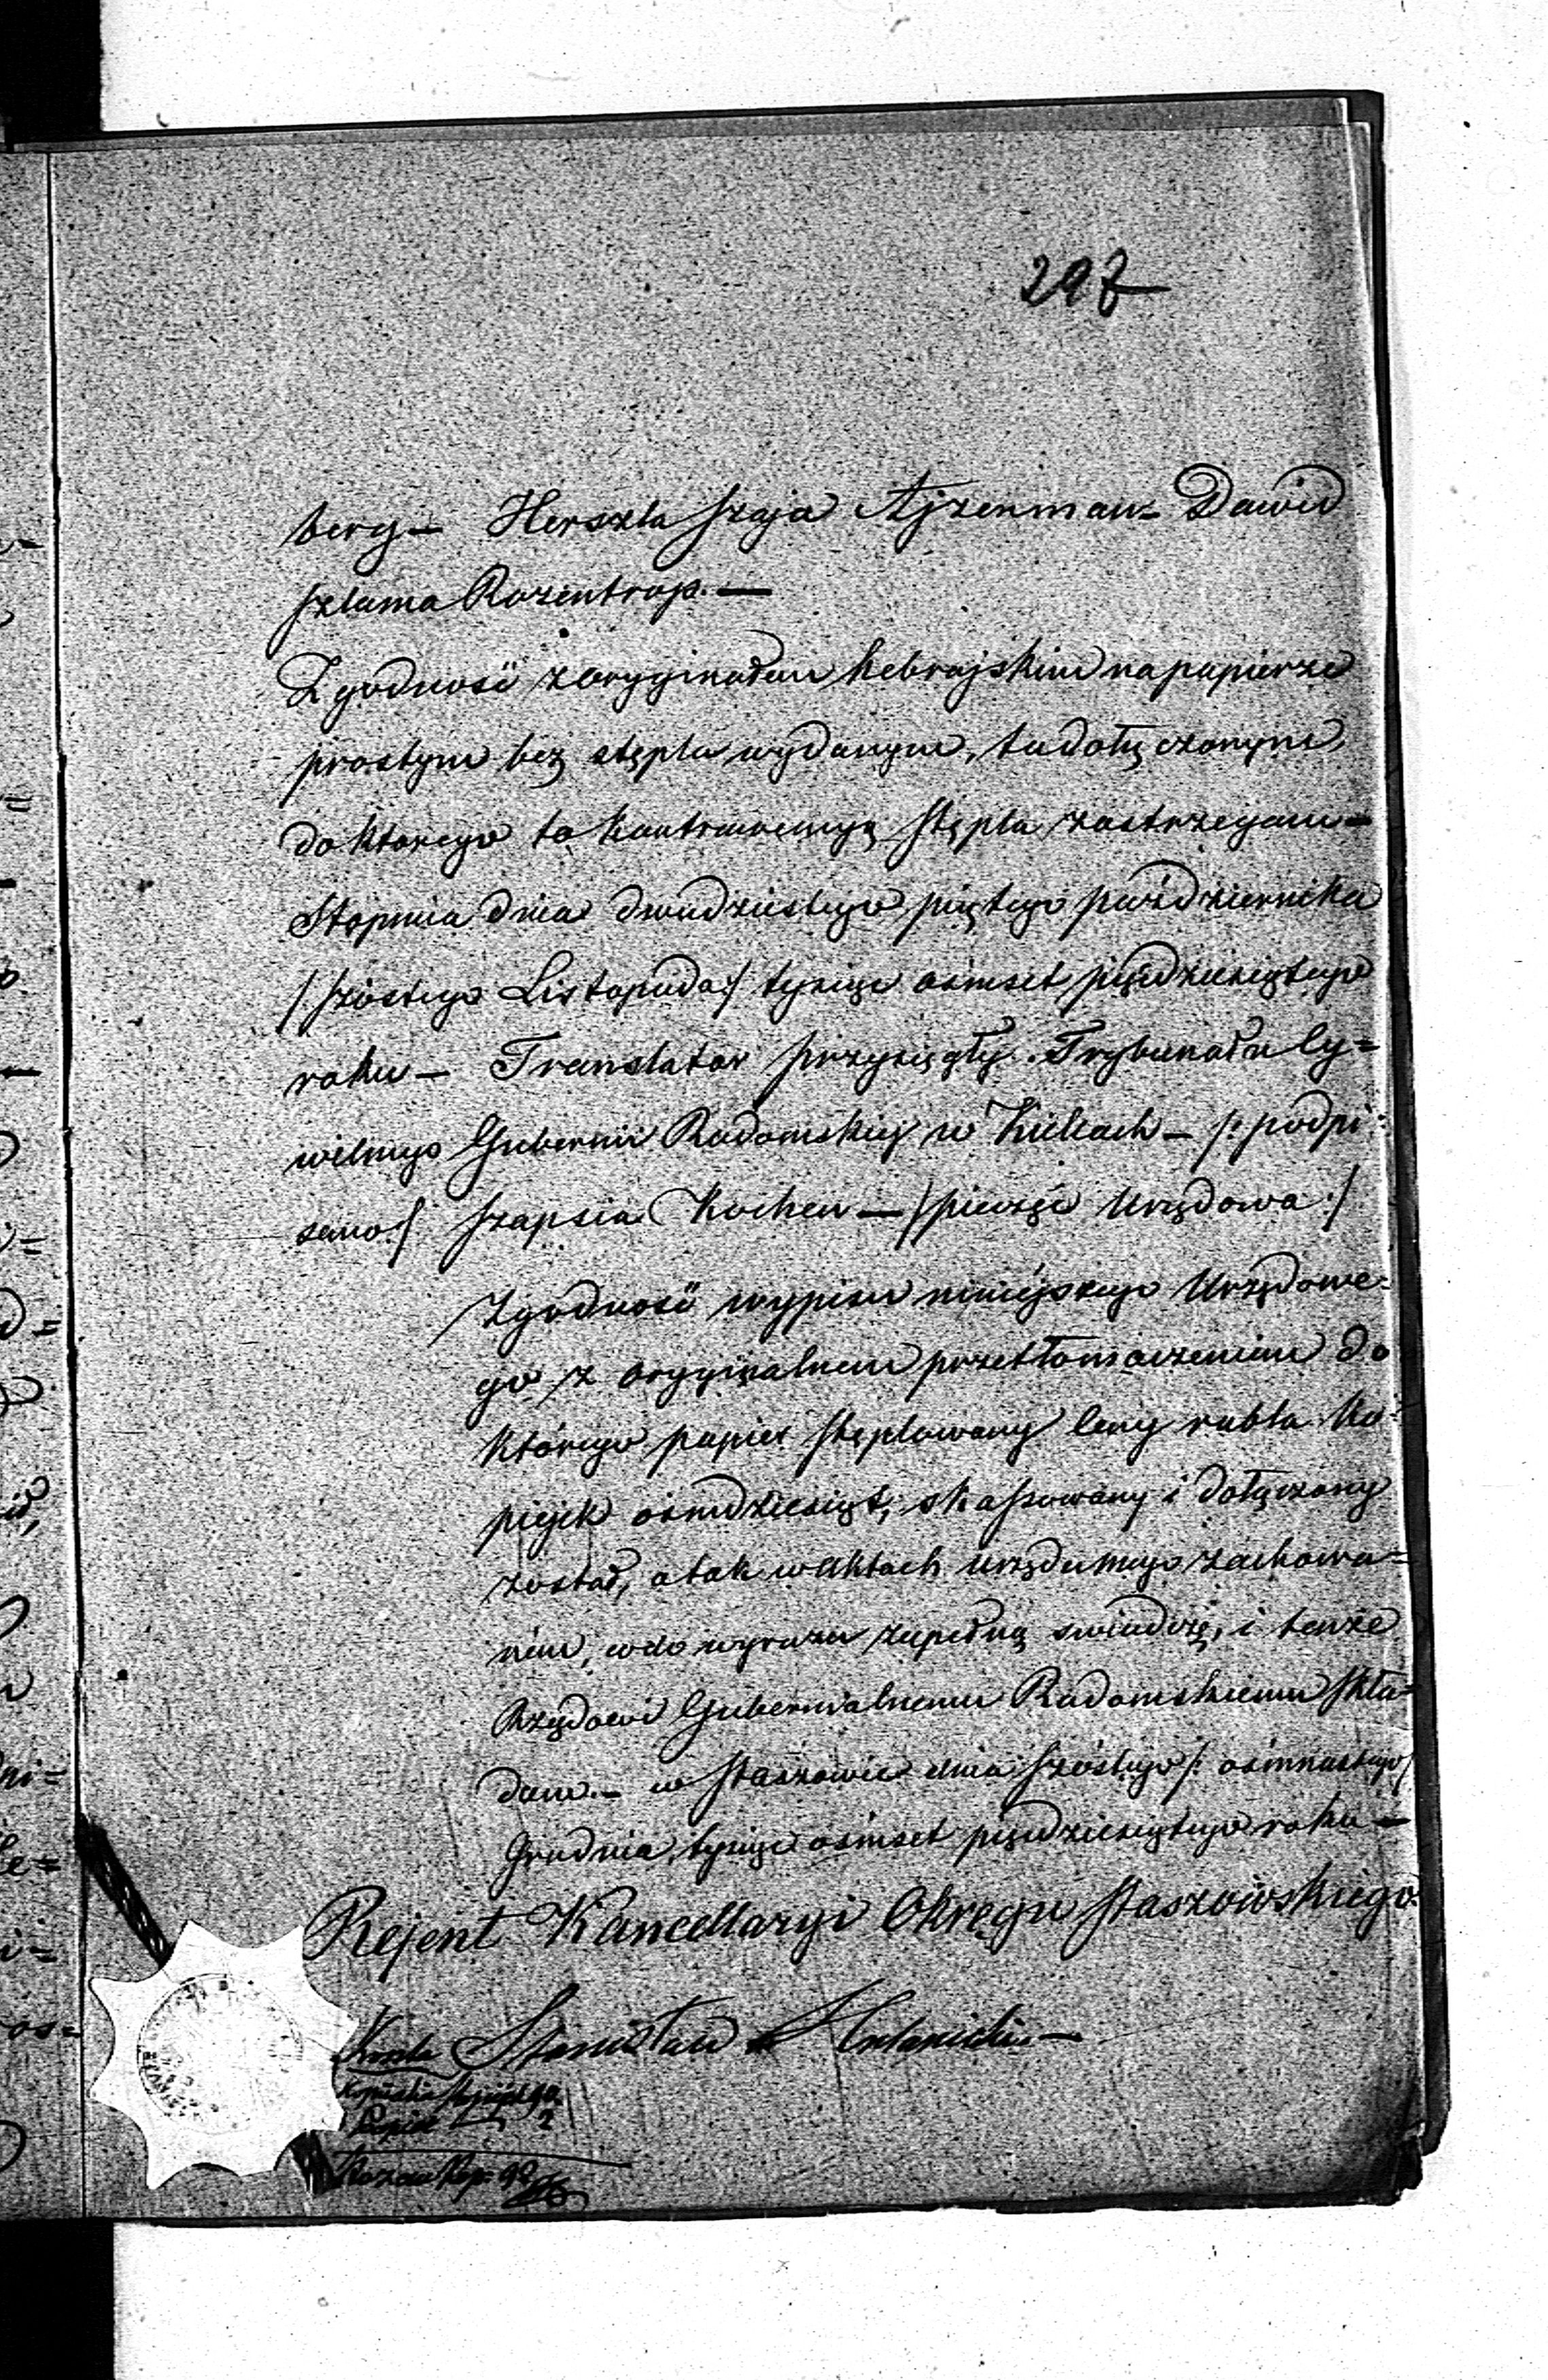 297
berg – Herszla Szaja Ajzenman = Dawid
Szlama Rozentrop. –
Zgodność z oryginałem hebrajskim na papierze
prostym bez stępla wydanym, tu dołączonym,
do ktorego to kontrawencyą stępla zastrzegam –
Stopnica dnia dwudziestego piątego października
/szóstego Listopada:/ tysiąc ośmset pięćdziesiątego
roku – Translator przysięgły Trybunału Cy=
wilnego Gubernii Radomskiej w Kielcach – /: podpi:
sano:/ Szapsia Kochen – /pieczęć Urzędowa:/
Zgodność wypisu niniejszego Urzędowe:
go z oryginalnem przetłomaczeniem do
którego papier stęplowany ceny rubla ko:
piejek ośmdziesiąt, skassowany i dołączony
został, a tak w aktach urzędu mego zachowa=
nem, co do wyrazu zupełną świadczę, i tenże
Rządowi Gubernialnemu Radomskiemu skła=
dam. – w Staszowie dnia szóstego /: ośmnastego/
Grudnia, tysiąc ośmset pięćdziesiątego roku –
Rejent Kancellaryi Okręgu Staszowskiego
Stanisław
Papier 2
Razem Kop. 92